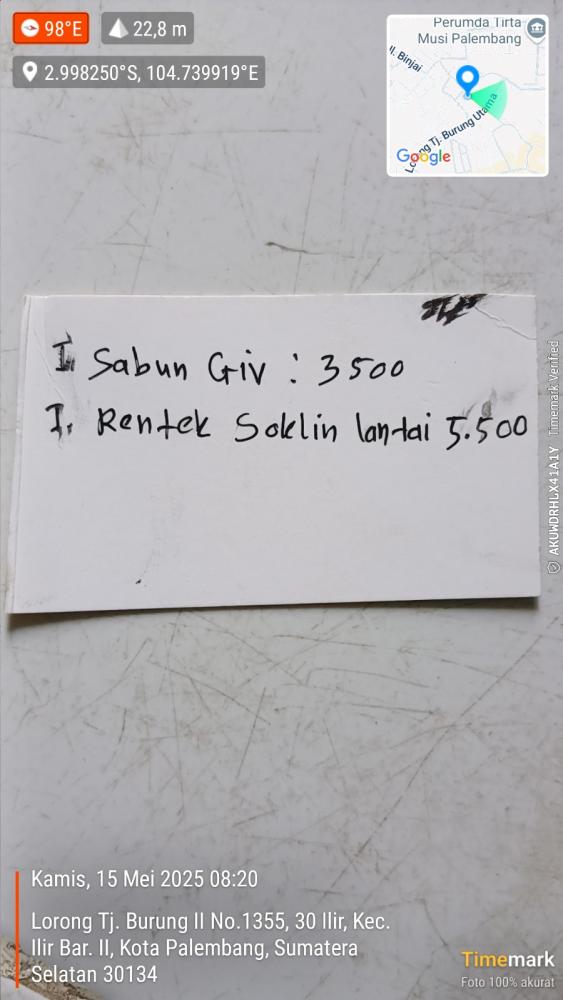 98°E
22,8 m
2.998250°S, 104.739919°E
Perumda Tirta
Musi Palembang
Jl. Binjai
Lorong Tj. Burung Utama
Google
I. Sabun Giv : 3500
I. Rentek Soklin lantai 5.500
AKUWDRHLX41A1Y Timemark Verified
Kamis, 15 Mei 2025 08:20
Lorong Tj. Burung II No.1355, 30 Ilir, Kec.
Ilir Bar. II, Kota Palembang, Sumatera
Selatan 30134
Timemark
Foto 100% akurat